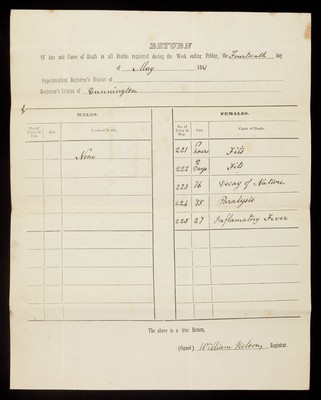 RETURN
Of Age and Cause of Death in all Deaths registered during the Week ending Friday, the Fourteenth day
of May 184
Superintendent Registrar's District of
Registrar's District of Dunnington
MALES. FEMALES.
No. of Entry in Reg. Age. Cause of Death. No. of Entry in Reg. Age. Cause of Death.
None
221 17 hours Fits
222 2 Days Fits
223 76 Decay of Nature
224 75 Paralysis
225 27 Inflamatory Fever
The above is a true Return,
(Signed) William Nelson, Registrar.